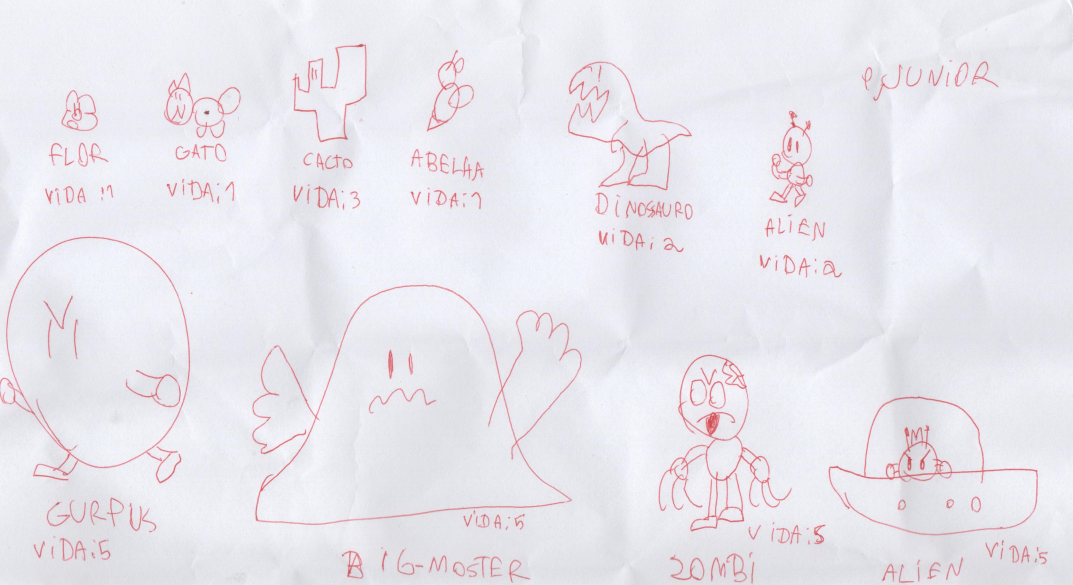 JUNIOR
FLOR
ViDA:1
GATO
ViDA:1
CACTO
ViDA:3
ABELHA
ViDA:1
DiNOSAURO
ViDA:2
ALiEN
ViDA:2
GURPUS
ViDA:5
BiG-MOSTER
ViDA:5
ZOMBi
ViDA:5
ALiEN
ViDA:5